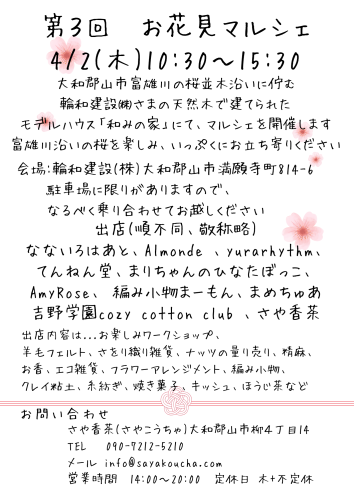 第3回　お花見マルシェ
4/2(木)10:30～15:30
大和郡山市富雄川の桜並木沿いに佇む
輪和建設㈱さまの天然木で建てられた
モデルハウス「和みの家」にて、マルシェを開催します
富雄川沿いの桜を楽しみ、いっぷくにお立ち寄りください
会場:輪和建設(株)大和郡山市満願寺町814-6
駐車場に限りがありますので、
なるべく乗り合わせてお越しください
出店(順不同、敬称略)
なないろはあと、Almonde 、yurarhythm、
てんねん堂、まりちゃんのひなたぼっこ、
AmyRose、 編み小物まーもん、まめちゅあ
吉野学園cozy cotton club 、さや香茶
出店内容は...お楽しみワークショップ、
羊毛フェルト、さをり織り雑貨、ナッツの量り売り、精麻、
お香、エコ雑貨、フラワーアレンジメント、編み小物、
クレイ粘土、糸紡ぎ、焼き菓子、キッシュ、ほうじ茶など
お問い合わせ
さや香茶(さやこうちゃ)大和郡山市柳4丁目14
TEL　090-7212-5210
メール info@sayakoucha.com
営業時間　14:00～20:00　定休日　木+不定休